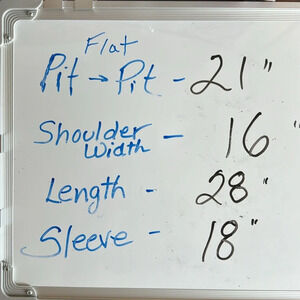 Flat
Pit → Pit - 21"
Shoulder Width - 16"
Length - 28"
Sleeve - 18"